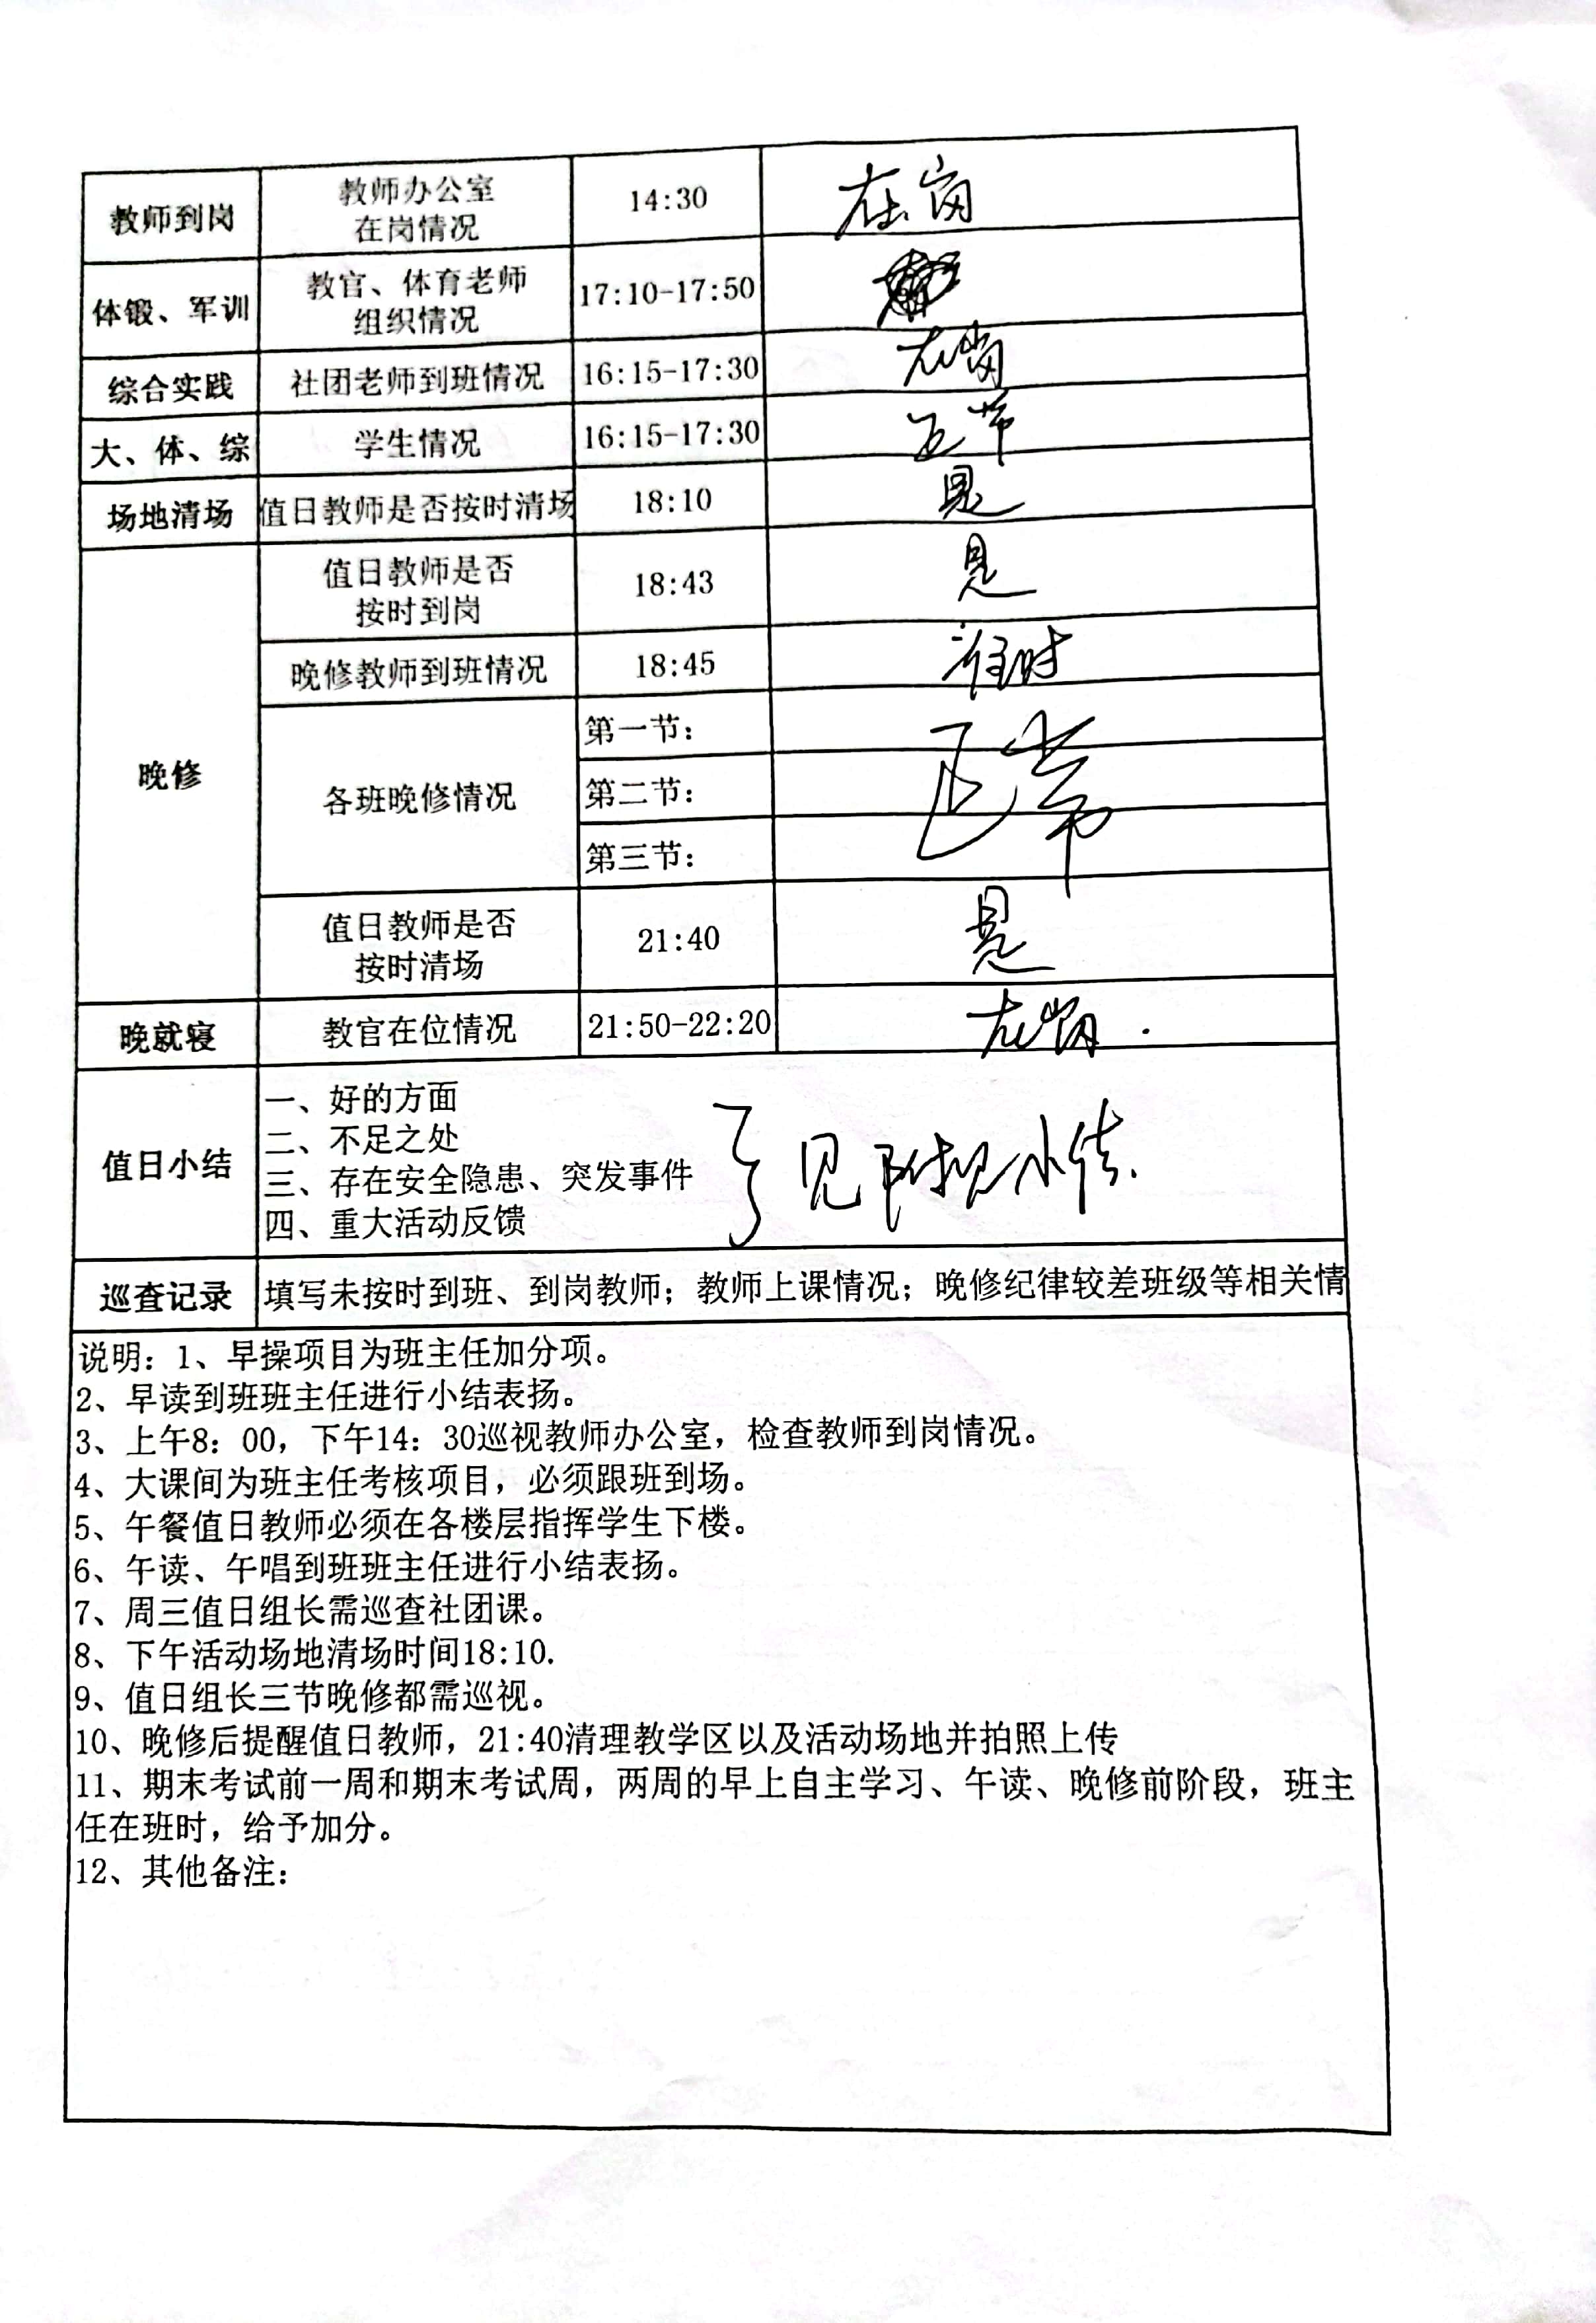 教师到岗 教师办公室 14:30 在岗
在岗情况
体锻、军训 教官、体育老师 17:10-17:50
组织情况
综合实践 社团老师到班情况 16:15-17:30 在岗
大、体、综 学生情况 16:15-17:30 正常
场地清场 值日教师是否按时清场 18:10 是
晚修 值日教师是否 18:43 是
按时到岗
晚修教师到班情况 18:45 准时
各班晚修情况 第一节: 正常
第二节:
第三节:
值日教师是否 21:40 是
按时清场
晚就寝 教官在位情况 21:50-22:20 在岗.
值日小结 一、好的方面
二、不足之处
三、存在安全隐患、突发事件
四、重大活动反馈
见 小结.
巡查记录 填写未按时到班、到岗教师;教师上课情况;晚修纪律较差班级等相关情
说明:1、早操项目为班主任加分项。
2、早读到班班主任进行小结表扬。
3、上午8:00,下午14:30巡视教师办公室,检查教师到岗情况。
4、大课间为班主任考核项目,必须跟班到场。
5、午餐值日教师必须在各楼层指挥学生下楼。
6、午读、午唱到班班主任进行小结表扬。
7、周三值日组长需巡查社团课。
8、下午活动场地清场时间18:10.
9、值日组长三节晚修都需巡视。
10、晚修后提醒值日教师,21:40清理教学区以及活动场地并拍照上传
11、期末考试前一周和期末考试周,两周的早上自主学习、午读、晚修前阶段,班主
任在班时,给予加分。
12、其他备注: